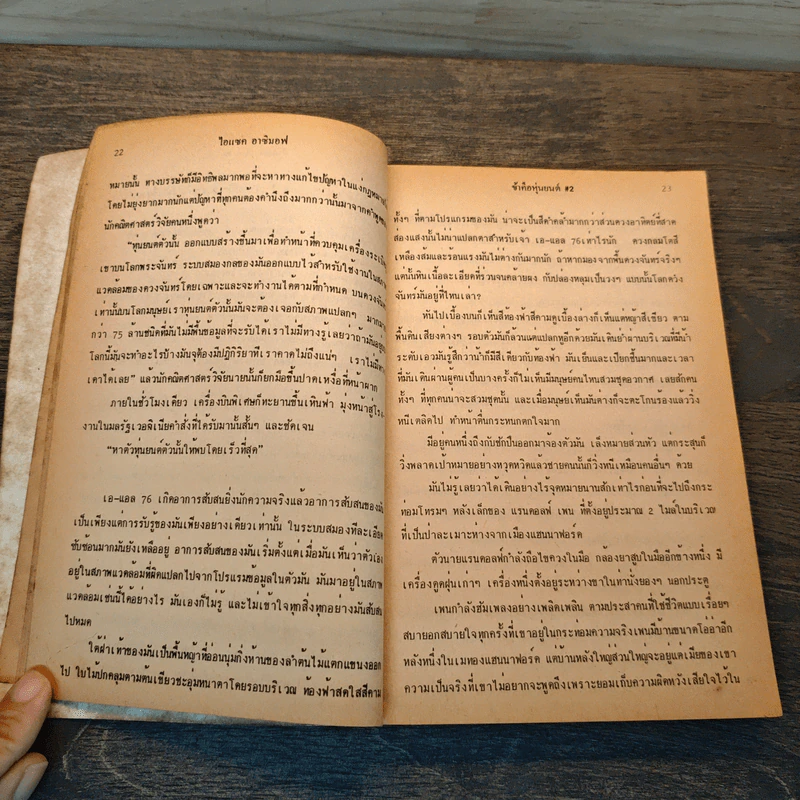 22
ไอแซค อาซิมอฟ
หมายนั้น ทางบรรษัทก็มีอิทธิพลมากพอที่จะหาทางแก้ไขปัญหาในแง่กฎหมาย
โดยไม่ยุ่งยากมากนักแต่ปัญหาที่ทุกคนต้องคำนึงถึงมากกว่านั้นมาจากคำพูด
นักคณิตศาสตร์วิจัยคนหนึ่งพูดว่า
"หุ่นยนต์ตัวนั้น ออกแบบสร้างขึ้นมาเพื่อทำหน้าที่ควบคุมเครื่องระเบิ
เขาบนโลกพระจันทร์ ระบบสมองกลของมันออกแบบไว้สำหรับใช้งานในสภา
แวดล้อมของดวงจันทร์โดยเฉพาะและจะทำงานได้ตามที่กำหนด บนดวงจันท
เท่านั้นบนโลกมนุษย์เราหุ่นยนต์ตัวนั้นมันจะต้องเจอกับสภาพแปลกๆ มากม
กว่า 75 ล้านชนิดที่มันไม่มีพื้นข้อมูลที่จะรับได้เราไม่มีทางรู้เลยว่าถ้ามันอยู่
โลกนี้มันจะทำอะไรบ้างมันจุต้องมีปฏิกิริยาที่เราคาดไม่ถึงแน่ๆ เราไม่มีทาง
เดาได้เลย" แล้วนักคณิตศาสตร์วิจัยนายนั้นก็ยกมือขึ้นปาดเหงื่อที่หน้าผาก
ภายในชั่วโมงเดียว เครื่องบินพิเศษก็ทะยานขึ้นเหินฟ้า มุ่งหน้าสู่โรง
งานในมลรัฐเวอจิเนียคำสั่งที่ได้รับมานั้นสั้นๆ และชัดเจน
"หาตัวหุ่นยนต์ตัวนั้นให้พบโดยเร็วที่สุด"
เอ-แอล 76 เกิดอาการสับสนยิ่งนักความจริงแล้วอาการสับสนของมัน
เป็นเพียงแต่การรับรู้ของมันเพียงอย่างเดียวเท่านั้น ในระบบสมองที่ละเอียด
ซับซ้อนมากมันยังเหลืออยู่ อาการสับสนของมันเริ่มตั้งแต่เมื่อมันเห็นว่าตัวเอง
อยู่ในสภาพแวดล้อมที่ผิดแปลกไปจากโปรแกรมข้อมูลในตัวมัน มันมาอยู่ในสภาพ
แวดล้อมเช่นนี้ได้อย่างไร มันเองก็ไม่รู้ และไม่เข้าใจทุกสิ่งทุกอย่างมันสับสน
ไปหมด
ใต้ฝ่าเท้าของมันเป็นพื้นหญ้าที่อ่อนนุ่มกิ่งก้านของลำต้นไม้แตกแขนงออก
ไป ใบไม้ปกคลุมตามต้นเขียวชะอุ่มหนาตาโดยรอบบริเวณ ท้องฟ้าสดใสสีคาม
ข้าคือหุ่นยนต์ #2
23
ทั้งๆ ที่ตามโปรแกรมของมัน น่าจะเป็นสีดำคล้ามากกว่าส่วนดวงอาทิตย์ที่สาด
ส่องแสงนั้นไม่น่าแปลกตาสำหรับเจ้า เอ-แอล 76เท่าไรนัก ดวงกลมโตสี
เหลืองส้มและร้อนแรงมันไม่ต่างกันมากนัก ถ้าหากมองจากพื้นดวงจันทร์จริงๆ
แต่นั้นหินเนื้อละเอียดที่ร่วนจนคล้ายผง กับปล่องหลุมเป็นวงๆ แบบนั้นโลกดวง
จันทร์มันอยู่ที่ไหนเล่า?
หันไปเบื้องบนก็เห็นสีท้องฟ้าสีคามดูเบื้องล่างก็เห็นแต่หญ้าสีเขียว ตาม
พื้นดินเสียงต่างๆ รอบตัวมันก็ล้วนแต่แปลกหูอีกด้วยมันเดินย่ำผ่านบริเวณที่มีน้ำ
ระดับเอวมันรู้สึกว่าน้ำก็มีสีเดียวกับท้องฟ้า มันเย็นและเปียกชื้นมากและเวลา
ที่มันเดินผ่านผู้คนเป็นบางครั้งก็ไม่เห็นมีมนุษย์คนไหนสวมชุดอวกาศ เลยสักคน
ทั้งๆ ที่ทุกคนน่าจะสวมชุดนั้น และเมื่อมนุษย์เห็นมันต่างก็จะตะโกนร้องแล้ววิ่ง
หนีเตลิดไป ทำหน้าตื่นกระหนกตกใจมาก
มีอยู่คนหนึ่งถึงกับชักปืนออกมาจ้องตัวมัน เล็งหมายส่วนหัว แต่กระสุนก็
วิ่งพลาดเป้าหมายอย่างหวุดหวิดแล้วชายคนนั้นก็วิ่งหนีเหมือนคนอื่นๆ ด้วย
มันไม่รู้เลยว่าได้เดินอย่างไร้จุดหมายนานสักเท่าไรก่อนที่จะไปถึงกระ
ท่อมโทรมๆ หลังเล็กของ แรนดอลฟ์ เพน ที่ตั้งอยู่ประมาณ 2 ไมล์ในบริเวณ
ที่เป็นป่าละเมาะห่างจากเมืองแฮนนาฟอร์ด
ตัวนายแรนดอลฟ์กำลังถือไขควงในมือ กล้องยาสูบในมืออีกข้างหนึ่ง มี
เครื่องดูดฝุ่นเก่าๆ เครื่องหนึ่งตั้งอยู่ระหว่างขาในท่านั่งยองๆ นอกประตู
เพนกำลังฮัมเพลงอย่างเพลิดเพลิน ตามประสาคนที่ใช้ชีวิตแบบเรื่อยๆ
สบายอกสบายใจทุกครั้งที่เขาอยู่ในกระท่อมความจริงเพนมีบ้านขนาดโอ่อ่าอีก
หลังหนึ่งในเมทองแฮนนาฟอร์ด แต่บ้านหลังใหญ่ส่วนใหญ่จะอยู่แต่เมียของเขา
ความเป็นจริงที่เขาไม่อยากจะพูดถึงเพราะยอมเก็บความผิดหวังเสียใจไว้ใน